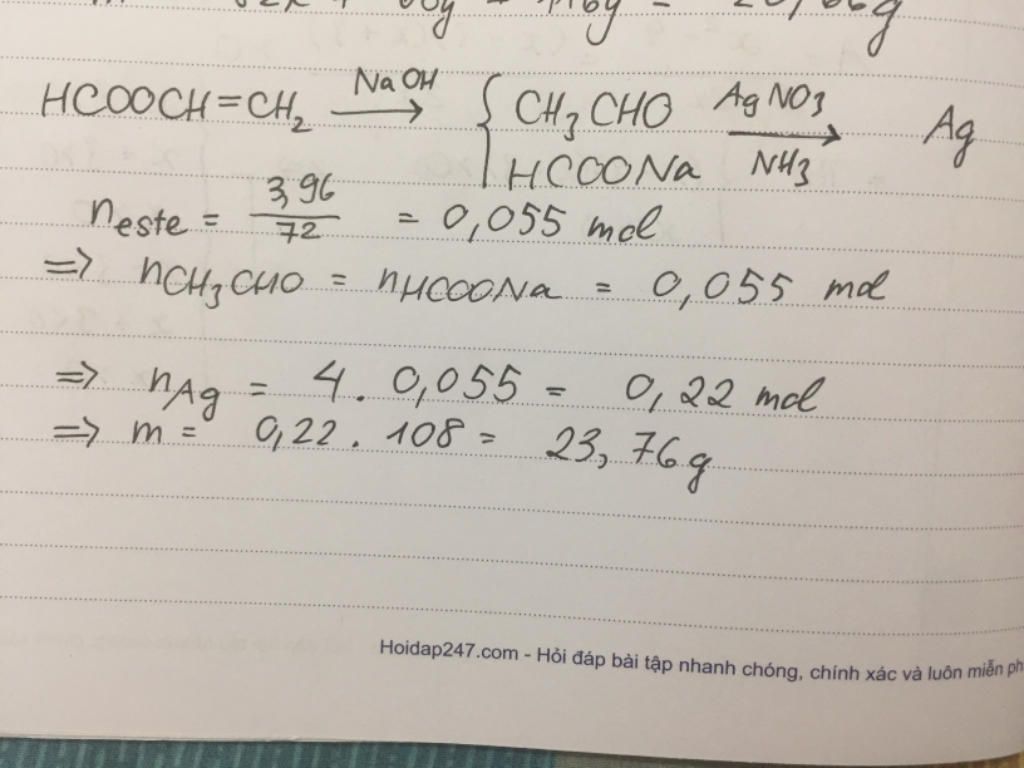 HCOOCH=CH₂ NaOH → { CH₃CHO AgNO₃ → Ag
HCOONa NH₃
n este = 3,96 / 72 = 0,055 mol
=> nCH₃CHO = nHCOONa = 0,055 mol
=> nAg = 4 . 0,055 = 0,22 mol
=> m = 0,22 . 108 = 23,76g
Hoidap247.com - Hỏi đáp bài tập nhanh chóng, chính xác và luôn miễn ph